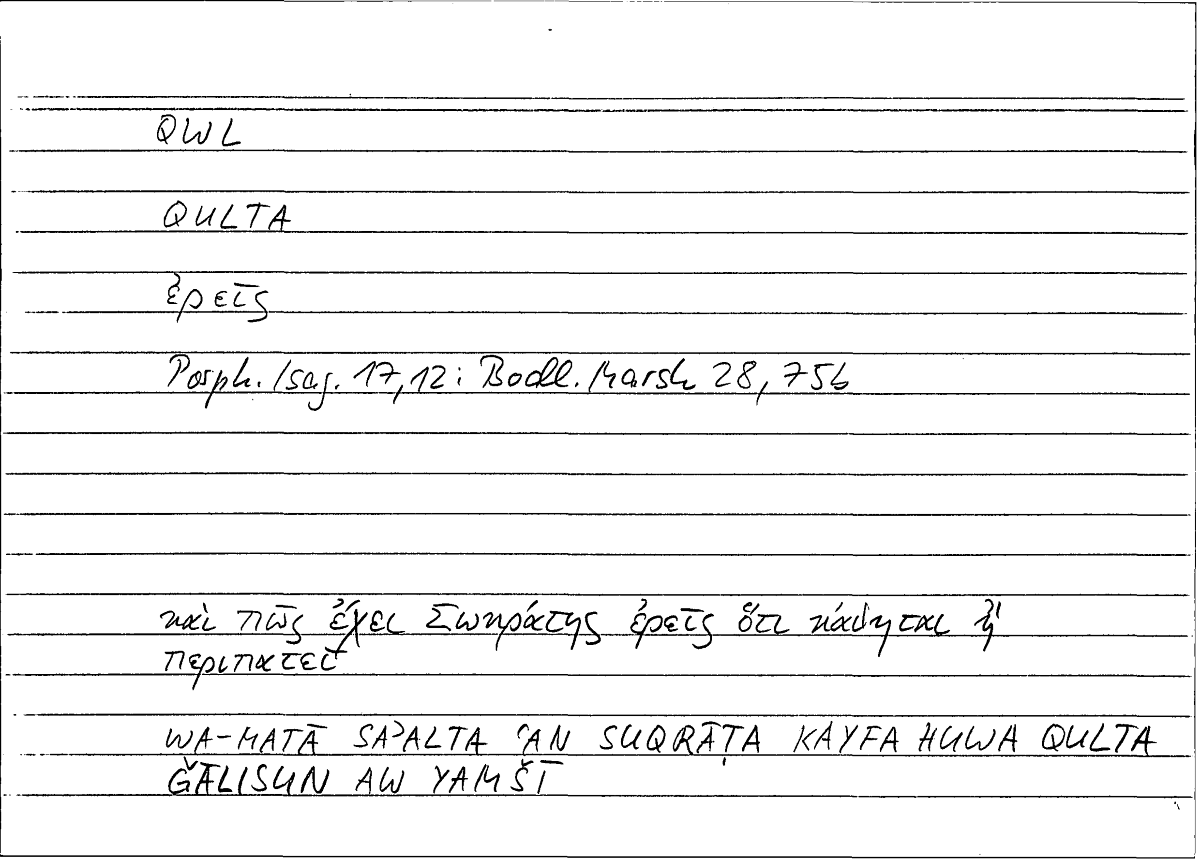 QWL
QULTA
ἐρεῖς
Porph. Isag. 17,12: Bodl. Marsh 28, 75b
καὶ πῶς ἔχει Σωκράτης ἐρεῖς ὅτι κάθηται ἢ
περιπατεῖ
WA-MATĀ SAʾALTA ʿAN SUQRĀṬA KAYFA HUWA QULTA
ǦĀLISUN AW YAMŠĪ